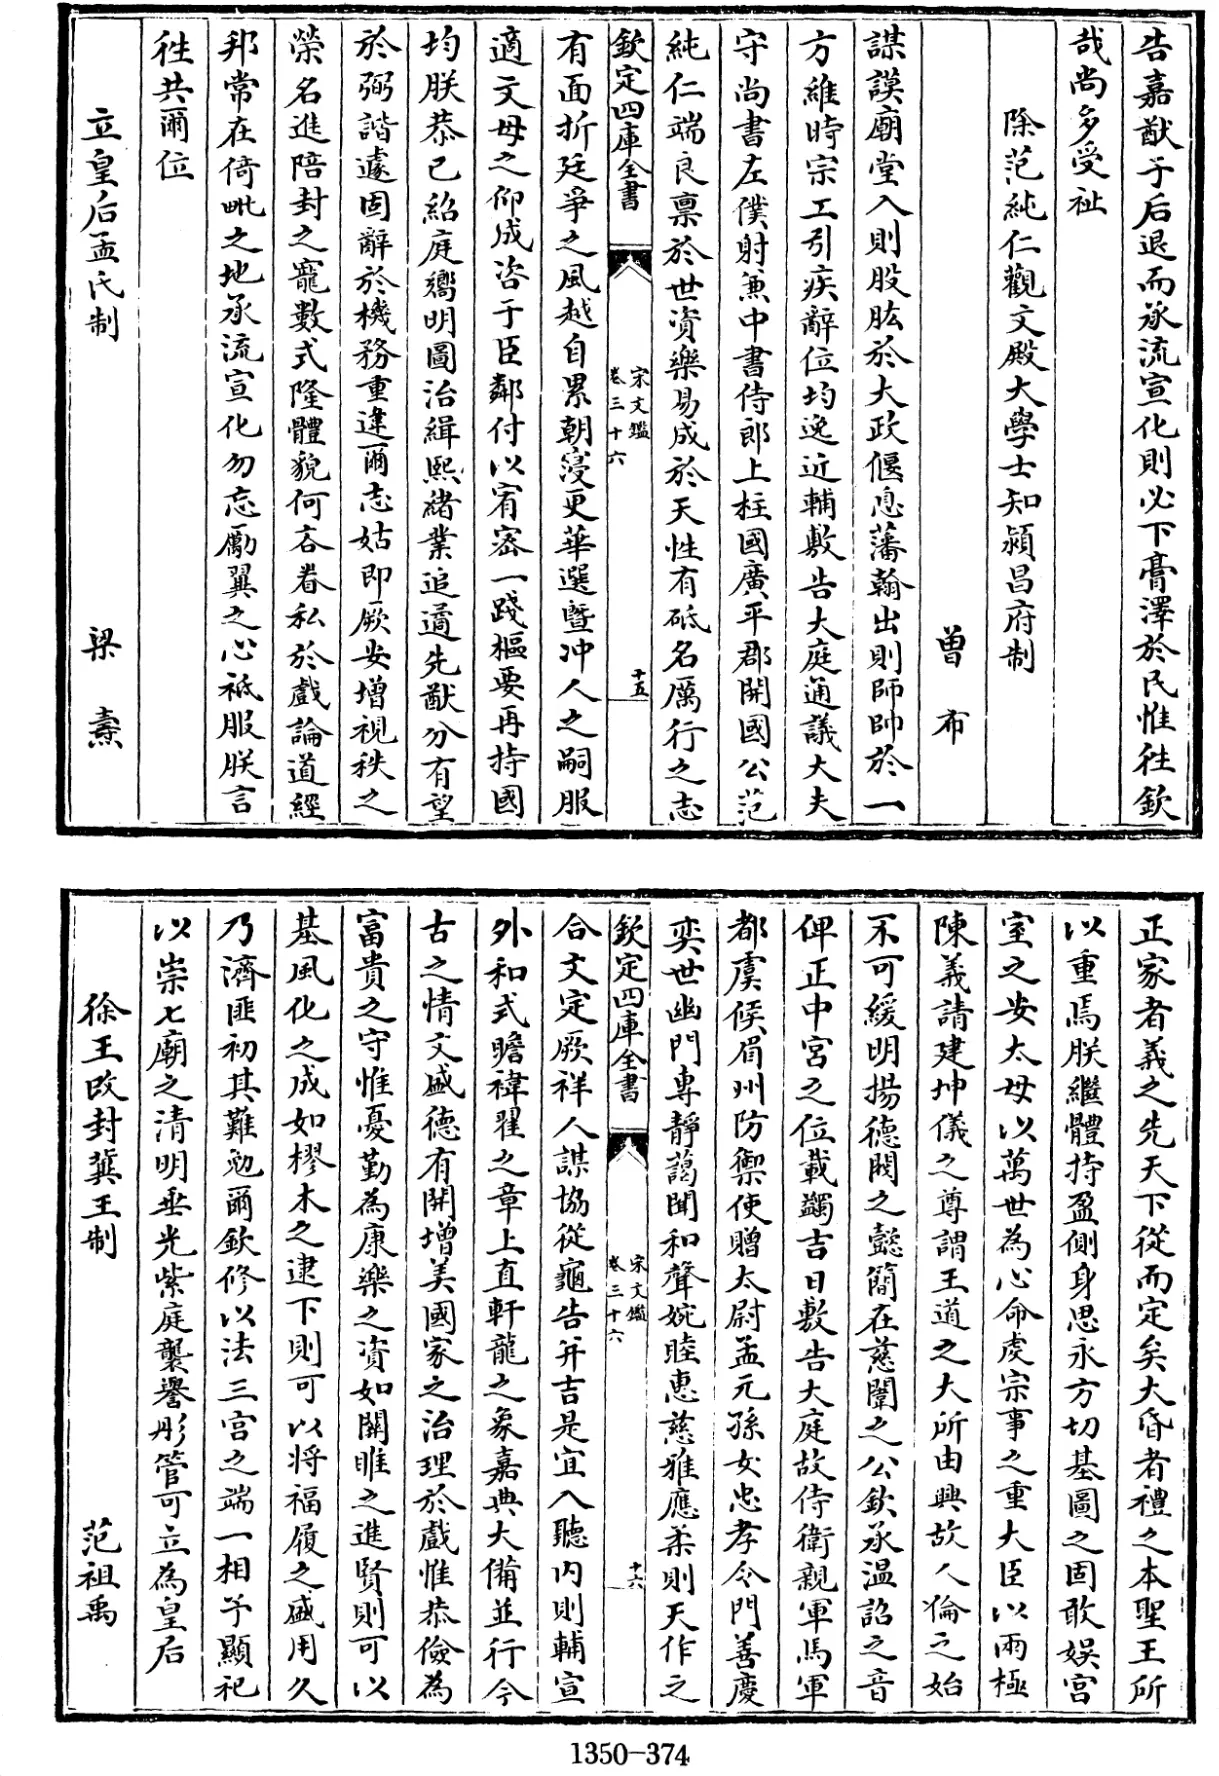 告嘉猷于后退而承流宣化則必下膏澤於民惟往欽
哉尚多受祉
除范純仁觀文殿大學士知潁昌府制
曾布
謀謨廟堂入則股肱於大政偃息藩翰出則師帥於一
方維時宗工引疾辭位均逸近輔敷告大庭通議大夫
守尚書左僕射兼中書侍郎上柱國廣平郡開國公范
純仁端良稟於世資樂易成於天性有砥名厲行之志
欽定四庫全書
宋文鑑
卷三十六
十五
有面折廷爭之風越自累朝寖更華選暨沖人之嗣服
適文母之仰成咨于臣鄰付以宥密一踐樞要再持國
均朕恭己紹庭嚮明圖治緝熙緒業追遹先猷分有望
於弼諧遽固辭於機務重違爾志姑即厥安增視秩之
榮名進陪封之寵數式隆體貌何吝眷私於戲論道經
邦常在倚毗之地承流宣化勿忘勵翼之心祗服朕言
往共爾位
立皇后孟氏制
梁燾
正家者義之先天下從而定矣大昏者禮之本聖王所
以重焉朕繼體持盈側身思永方切基圖之固敢娛宮
室之安太母以萬世為心命虔宗事之重大臣以兩極
陳義請建坤儀之尊謂王道之大所由興故人倫之始
不可緩明揚德閥之懿簡在慈闈之公欽承溫詔之音
俾正中宮之位載蠲吉日敷告大庭故侍衛親軍馬軍
都虞候眉州防禦使贈太尉孟元孫女忠孝令門善慶
奕世幽門專靜藹聞和聲婉睦惠慈雅應柔則天作之
欽定四庫全書
宋文鑑
卷三十六
十六
合文定厥祥人謀協從龜告并吉是宜入聽內則輔宣
外和式瞻褘翟之章上直軒龍之象嘉典大備並行今
古之情文盛德有開增美國家之治理於戲惟恭儉為
富貴之守惟憂勤為康樂之資如關雎之進賢則可以
基風化之成如樛木之逮下則可以將福履之盛用久
乃濟匪初其難勉爾欽修以法三宮之端一相予顯祀
以崇七廟之清明垂光紫庭襲譽彤管可立為皇后
徐王改封冀王制
范祖禹
1350-374